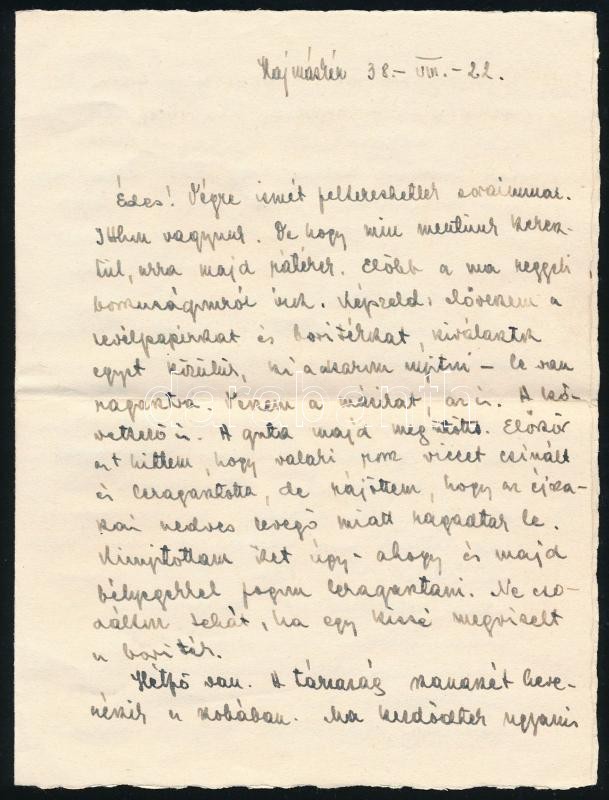 Hajmáskér 38.- VIII.-22.
Édes! Végre ismét felkereshetlek soraimmal.
Itthon vagyunk. De hogy min mentünk keresz-
tül, arra majd rátérek. Előbb a ma reggeli
bosszúságomról írok. Képzeld: előveszem a
levélpapírokat és borítékokat, kiválasztok
egyet közülük, ki akarom nyitni – le van
ragasztva. Veszem a másikat, az is. A kö-
vetkező is. A guta majd megütött. Először
azt hittem, hogy valaki rossz viccet csinált
és leragasztotta, de rájöttem, hogy az éjsza-
kai nedves levegő miatt ragadtak le.
Kinyitottam őket úgy-ahogy és majd
bélyegekkel fogom leragasztani. Ne cso-
dálkozz tehát, ha egy kissé megviselt
a boríték.
Hétfő van. A társaság kanasztát heve-
nészik a szobában. Ma kezdődtek ugyanis
darabanth